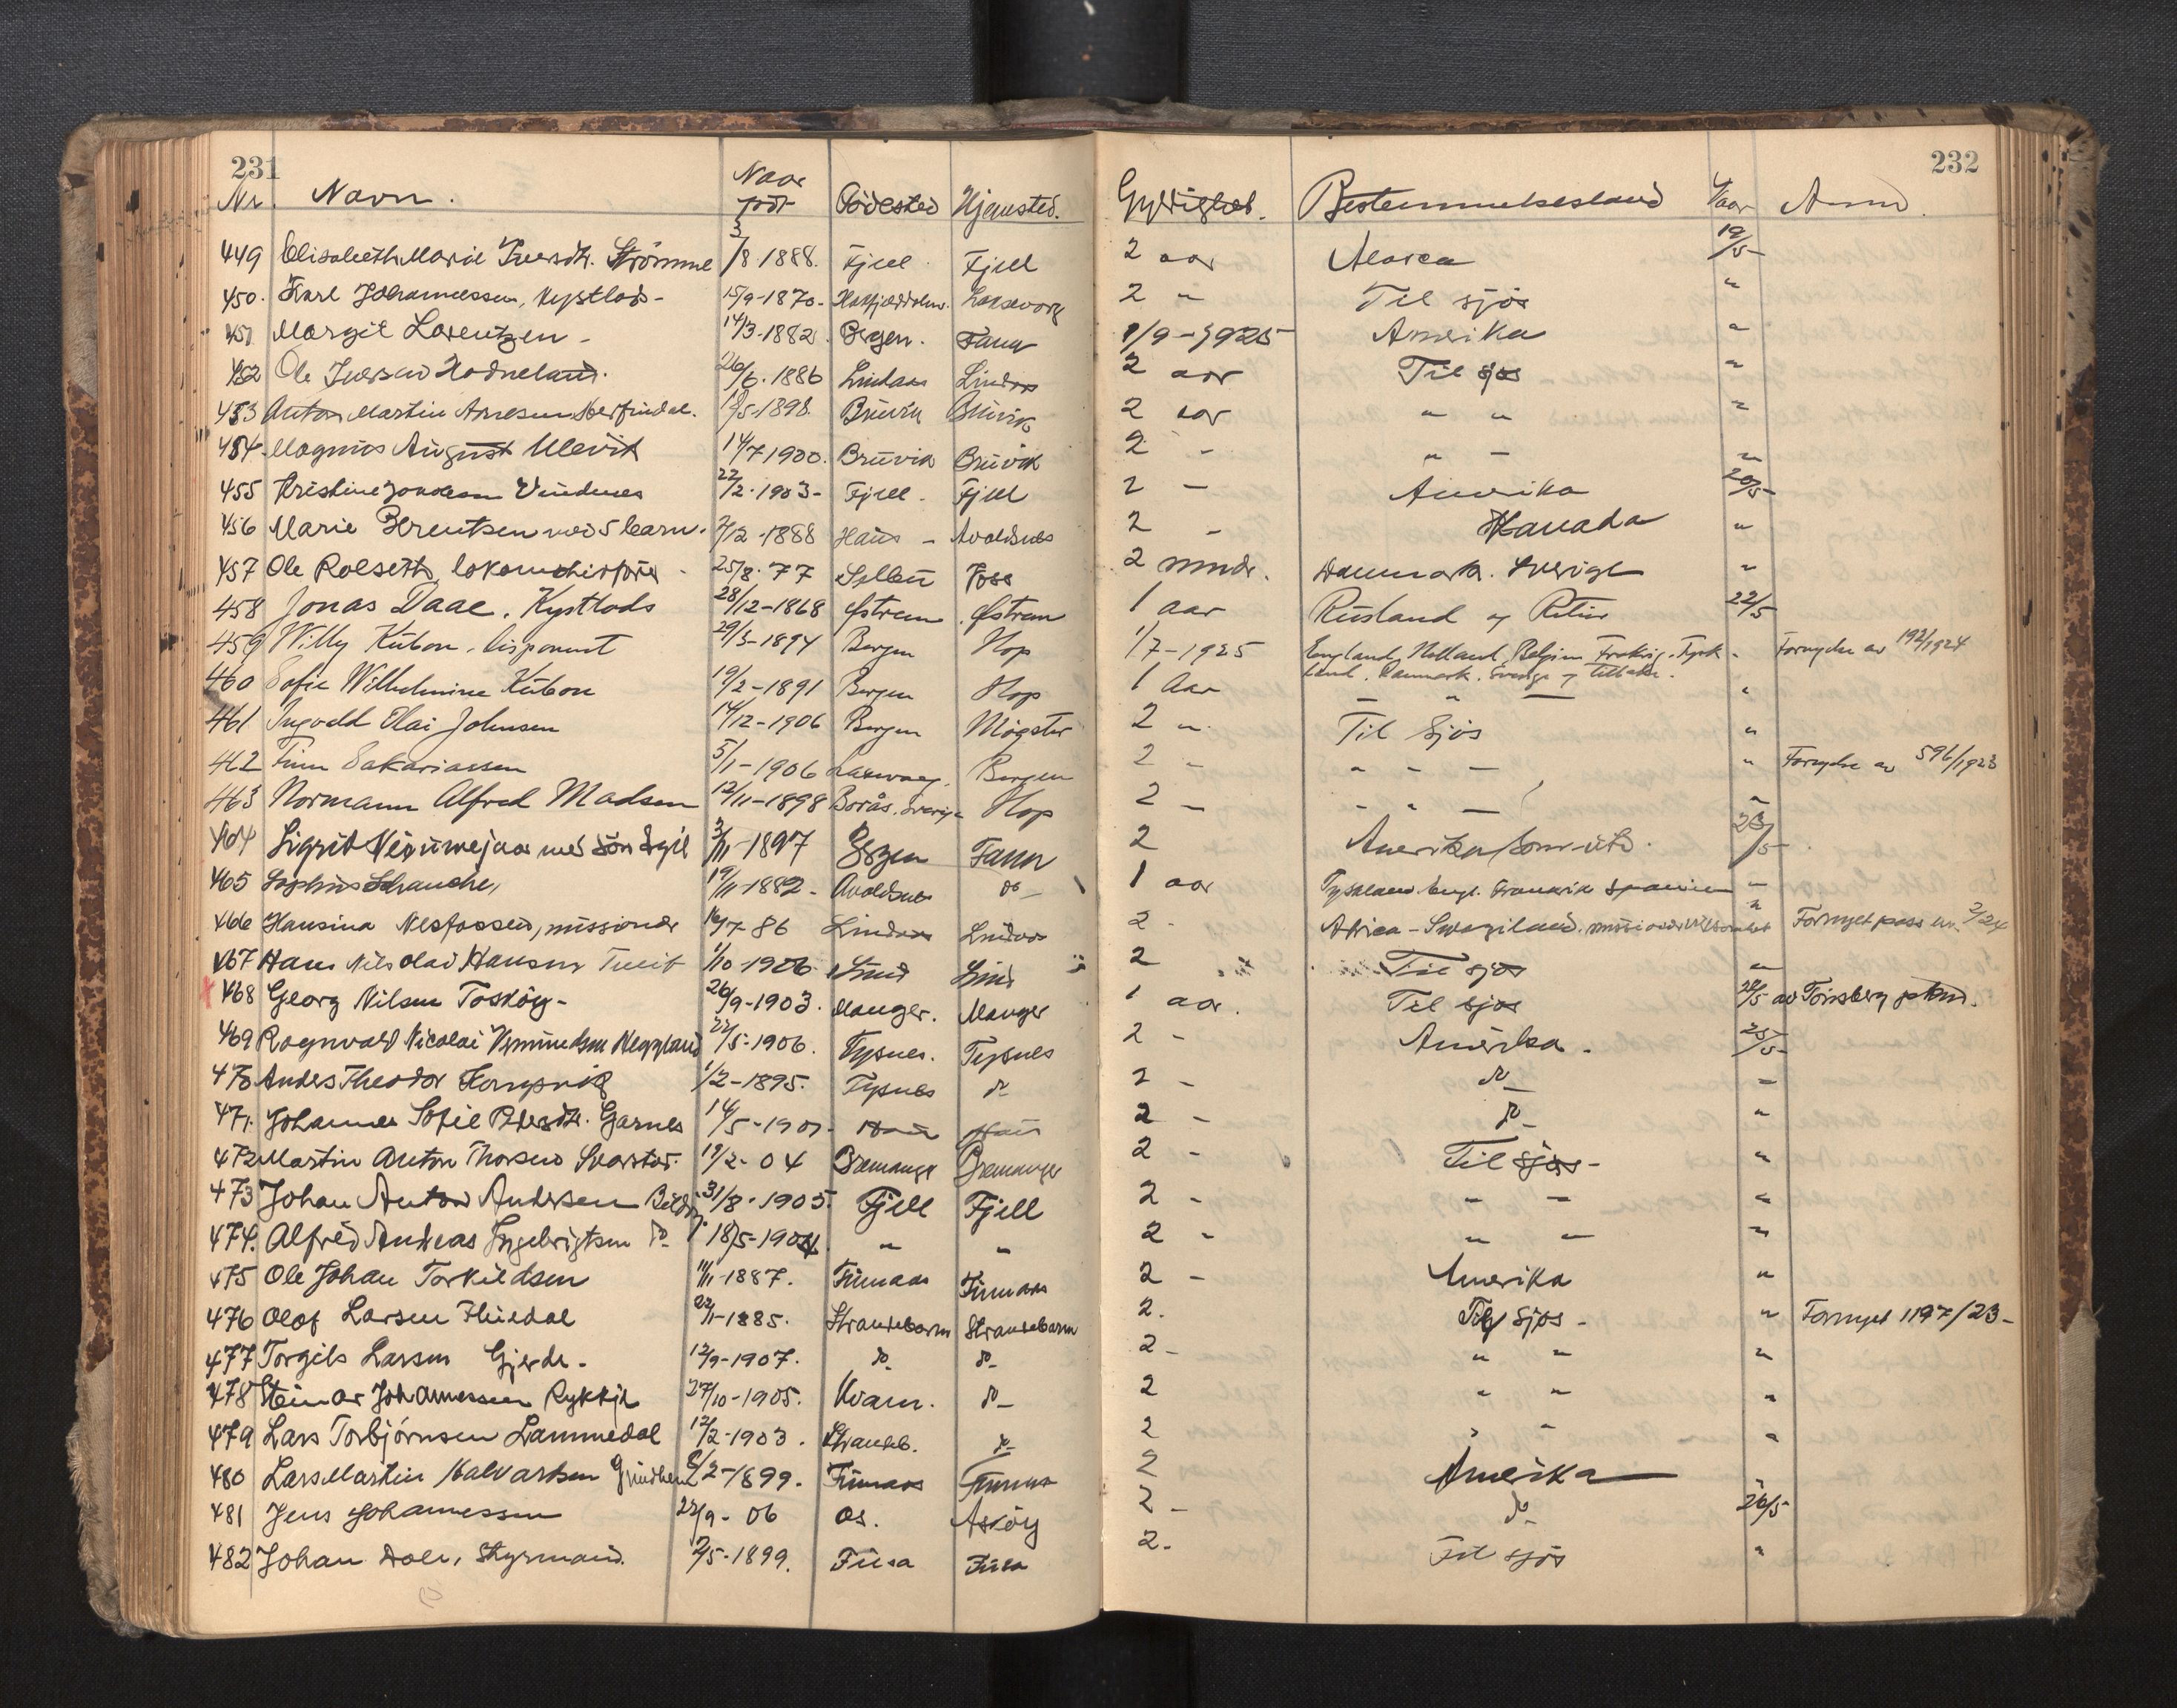 231
232
Nr. Navn. Naar født Födested Hjemsted. Gyldighet. Bestemmelsesland Naar Anm.
449 Elisabeth Marie Iversdtr. Strömme 3/8-1888. Fjell Fjell 2 aar 19/5
450. Karl Johannessen, Kystlods- 15/9-1870- Laksevaag 2 " Til sjøs "
451 Margit Lorentzen - 14/3-1882. Bergen. Fana 1/9-1925 Amerika "
452 Ole Iversen Hodneland. 26/6.1886 Lindaas Lindaas 2 aar Til sjøs "
453 Anton Martin Arnesen Herfindal. 18/5-1898. Bruvik Bruvik 2 aar " " "
454. Magnus August Ulevik 14/7 1900. Bruvik Bruvik 2 - " - "
455 Kristine Vindenes 22/2.1903- Fjell. Fjell 2 - Amerika 20/5
456 Marie Berentsen med 5 barn. 7/12-1888 Haus - Avaldsnes 2 - Kanada "
457 Ole Rolseth, lokomotivfører - 25/8.77 Voss 2 mndr. Danmark. Sverige "
458 Jonas Daae. Kystlods 28/12-1868 Østrem Østrem 1 aar Rusland og Retur 22/5
459 Willy Kubon. Disponent 29/3-1894 Bergen Hop 1/7-1925 England, Holland, Belgien Frankrig. Tysk- " Fornyelse av 192/1924
land. Danmark. Sverige og tilbake.
460 Sofie Wilhelmine Kubon 19/2-1891 Bergen Hop 1 Aar - " - "
461 Ingvald Elai Johnsen 14/12-1906 Bergen Møgster 2 " Til Sjøs "
462 Finn Sakariassen 5/1-1906 Laksevaag. Bergen 2 - " - - " Fornyelse av 596/1923
463 Normann Alfred Madsen 12/11-1898 Borås. Sverige Hop 2 - - " - "
464 Sigrid med sön Egil 3/11-1897 Bergen Fana 2 Amerika 23/5
465 19/11-1882- Avaldsnes do- 1 aar Tyskland. Engl. Frankrik Spanien "
466 Hansina Nesfossen, missionær 16/7-86 Lindaas Lindaas 2- Africa - Swaziland. " Fornyet pass nr. 2/24
467 Hans Nils Olai Hansen Tveit 1/10-1906 Sund Sund 2 Til sjøs "
468 Georg Nilsen Toskög- 26/9-1903. Manger. Manger 1 aar. Til sjøs 28/5 av Tönsberg
469 Ragnvald Nicolai Heggland 22/5-1906. Tysnes. Tysnes 2 - Amerika. 25/5
470 Anders Theodor 1/2-1895. Tysnes do- 2 - do- -
471. Johanne Sofie Pedersdtr. Garnes 14/5-1901- Haus Haus 2 - do- "
472 Martin Anton Thorsen 19/2-04 Bremanger Bremanger 2 - Til sjøs- "
473 Johan Anton Andersen Bildöy 31/8.1905. Fjell Fjell 2 - - - "
474. Alfred Andreas Ingebrigtsen do- 18/5-1904. " " 2 - " - "
475 Ole Johan Torkildsen 11/11-1887. Finnaas Finnaas 2 - Amerika "
476 Olof Larsen 22/1-1885. Strandebarm Strandebarm 2. Til Sjøs- " Fornyet 1197/23-
477 Torgils Larsen Gjerde- 12/9-1907. do- do- 2- " " "
478 Steinar Johannessen Rykkje 27/10-1905. Kvam. do- 2 " " "
479 Lars Torbjörnsen Lammedal 12/2-1903. Strandeb. do- 2 " " "
480 Lars Martin Halvarsen Grindheim 8/2-1899. Finnaas Finnaas 2 Amerika "
481 Jens Johannessen 22/9-06 Os. Asköy 2- do- 26/5
482 Johan Dale, Styrmand. 2/5-1899. Fusa Fusa 2. Til sjøs "